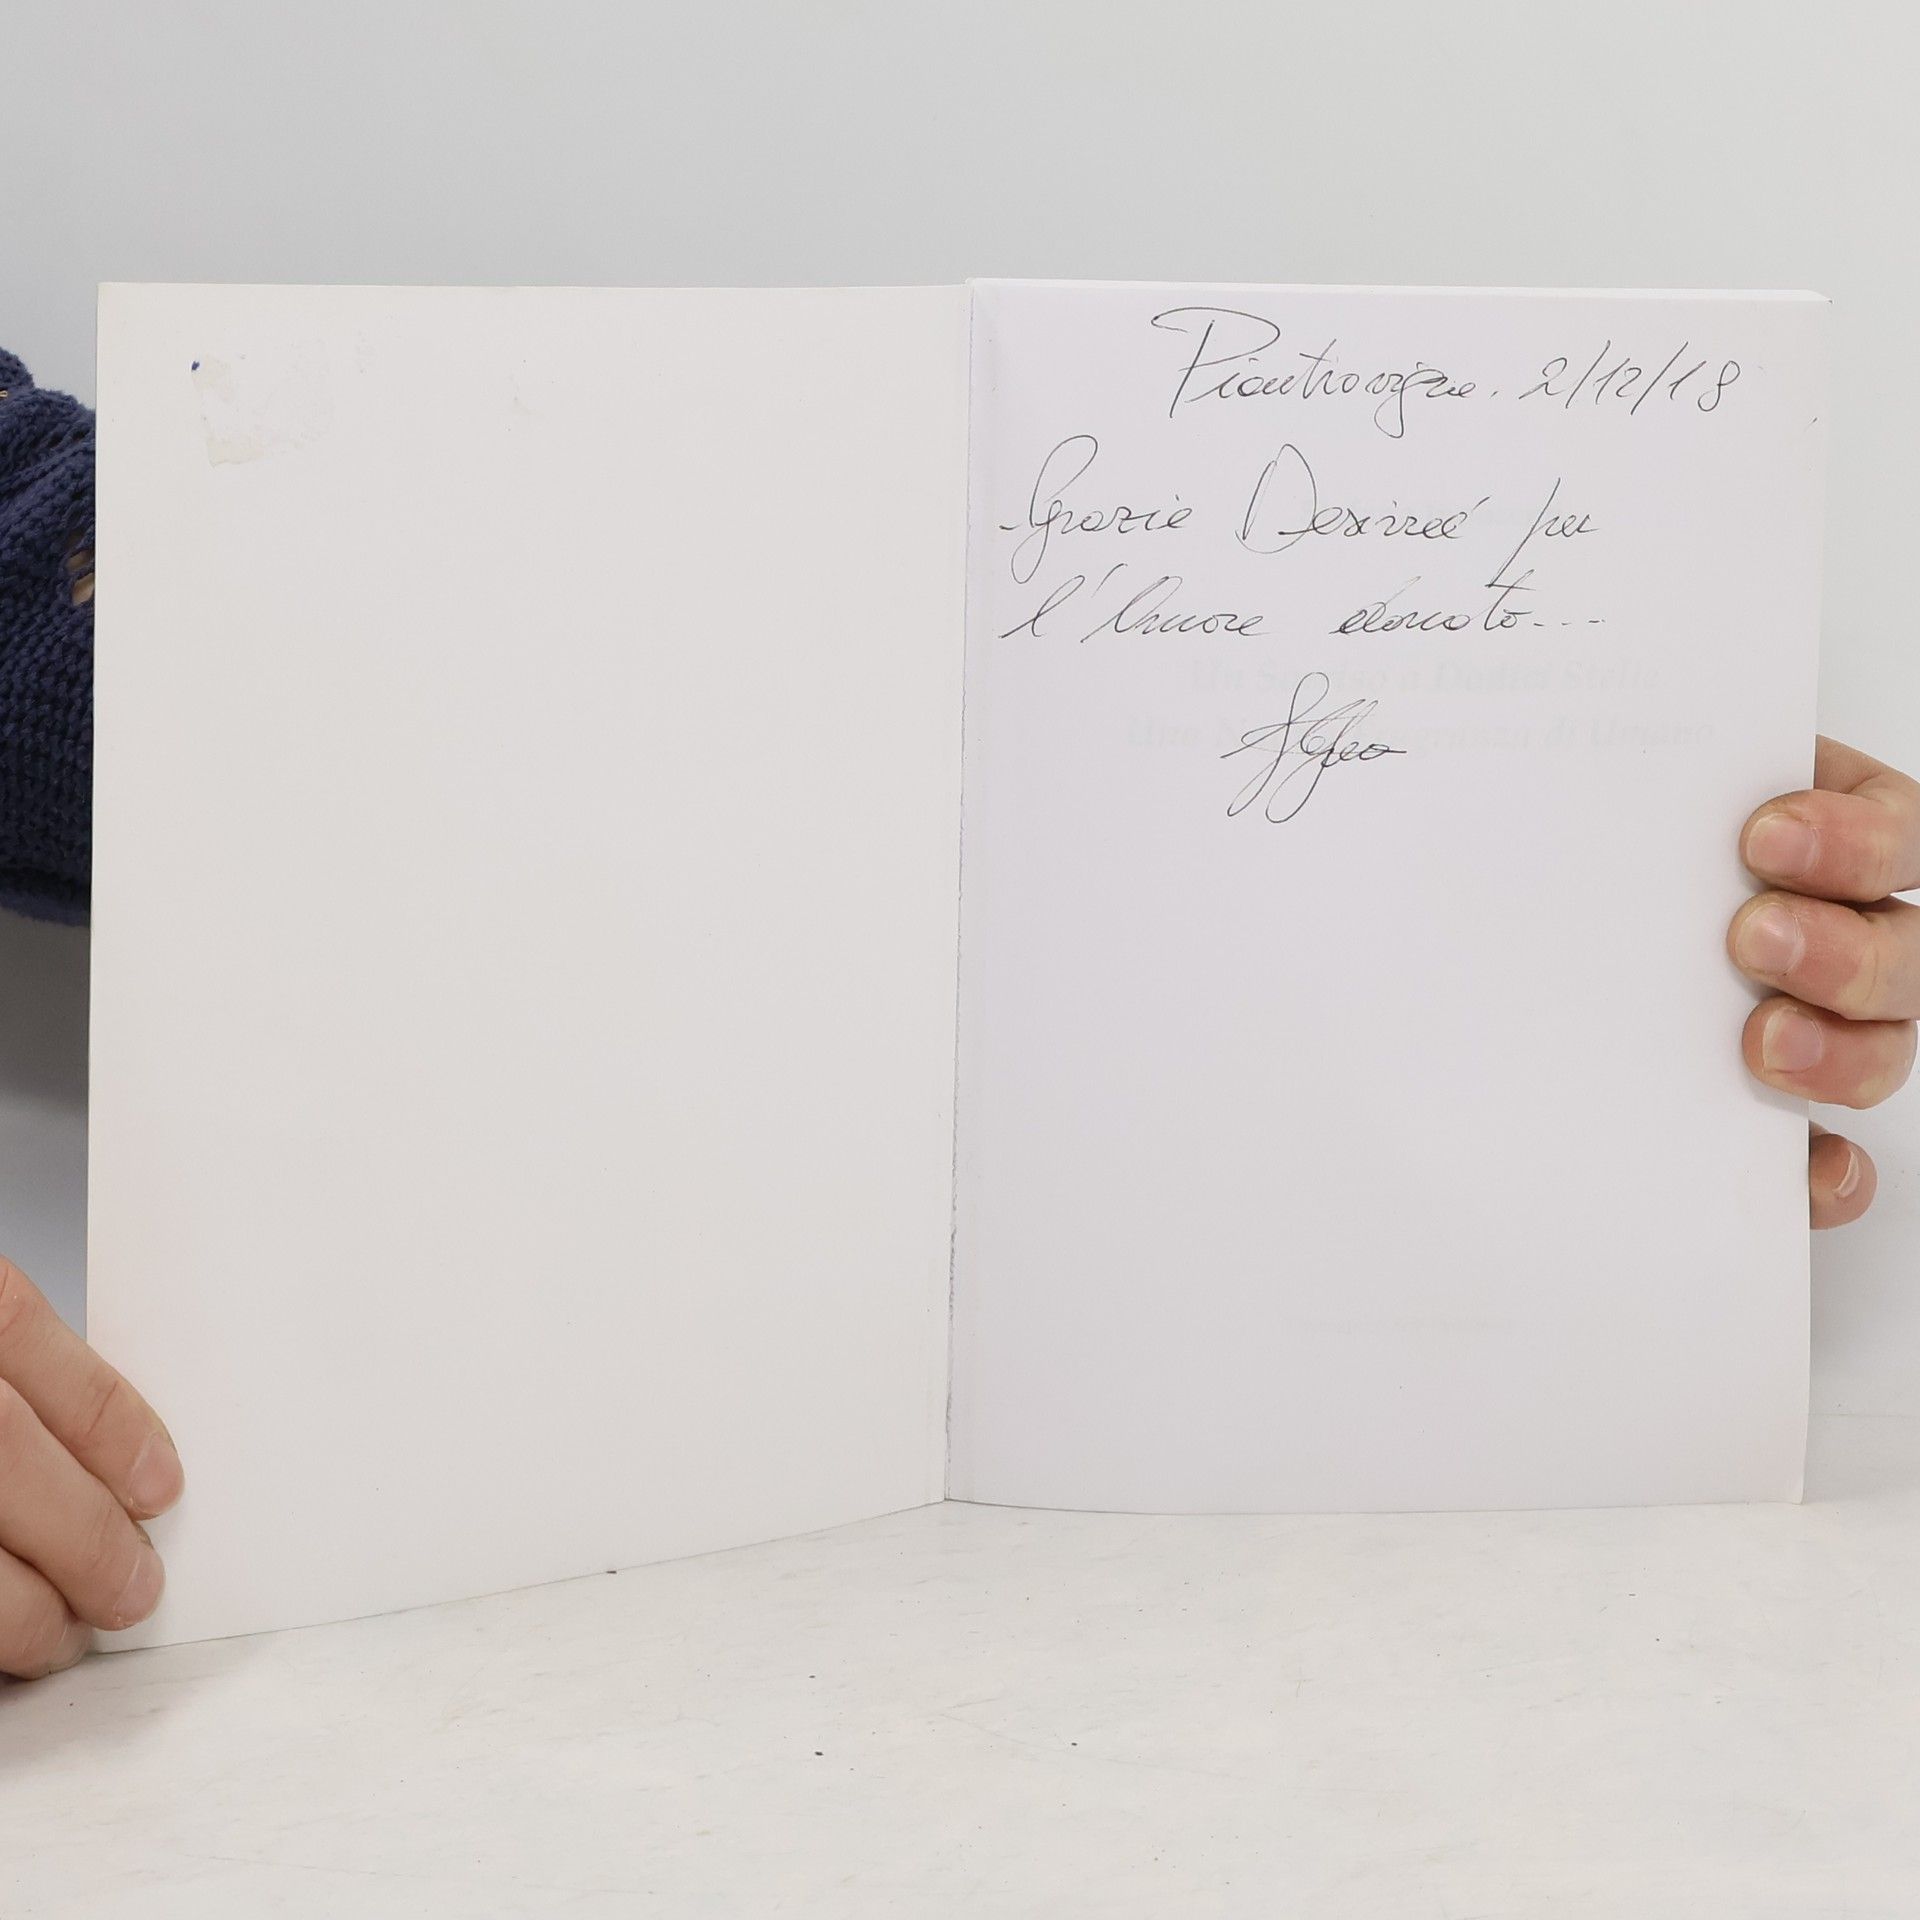 Piantravigne. 2/12/18
- Grazie Desireé per
l'Amore donato...
Un Sorriso a Dodici Stelle
Una di Umano